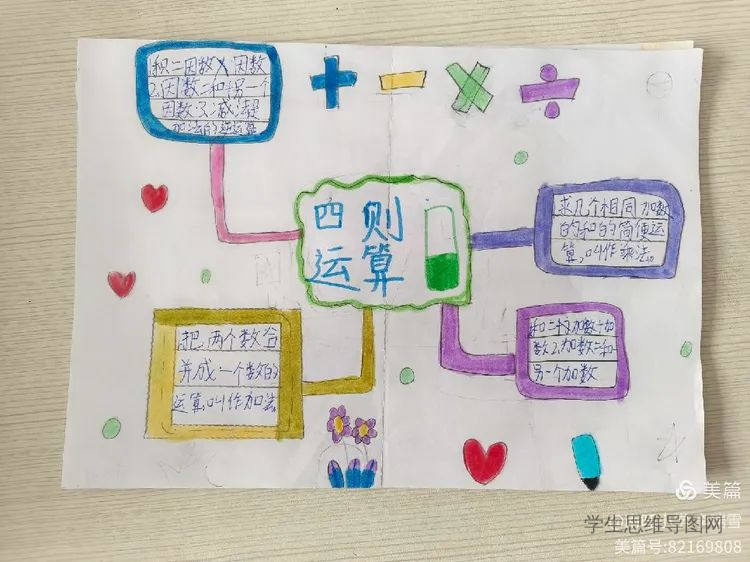 1积=因数X因数
2.因数=和÷另一个
因数3.减法是
加法的逆运算
+ - × ÷
四则
运算
求几个相同加数
的和的简便运
算,叫作乘法。
把两个数合
并成一个数的
运算,叫作加法
和=加数+加
数2.加数=和-
另一个加数
美篇
学生思维导图网
美篇号:82169808